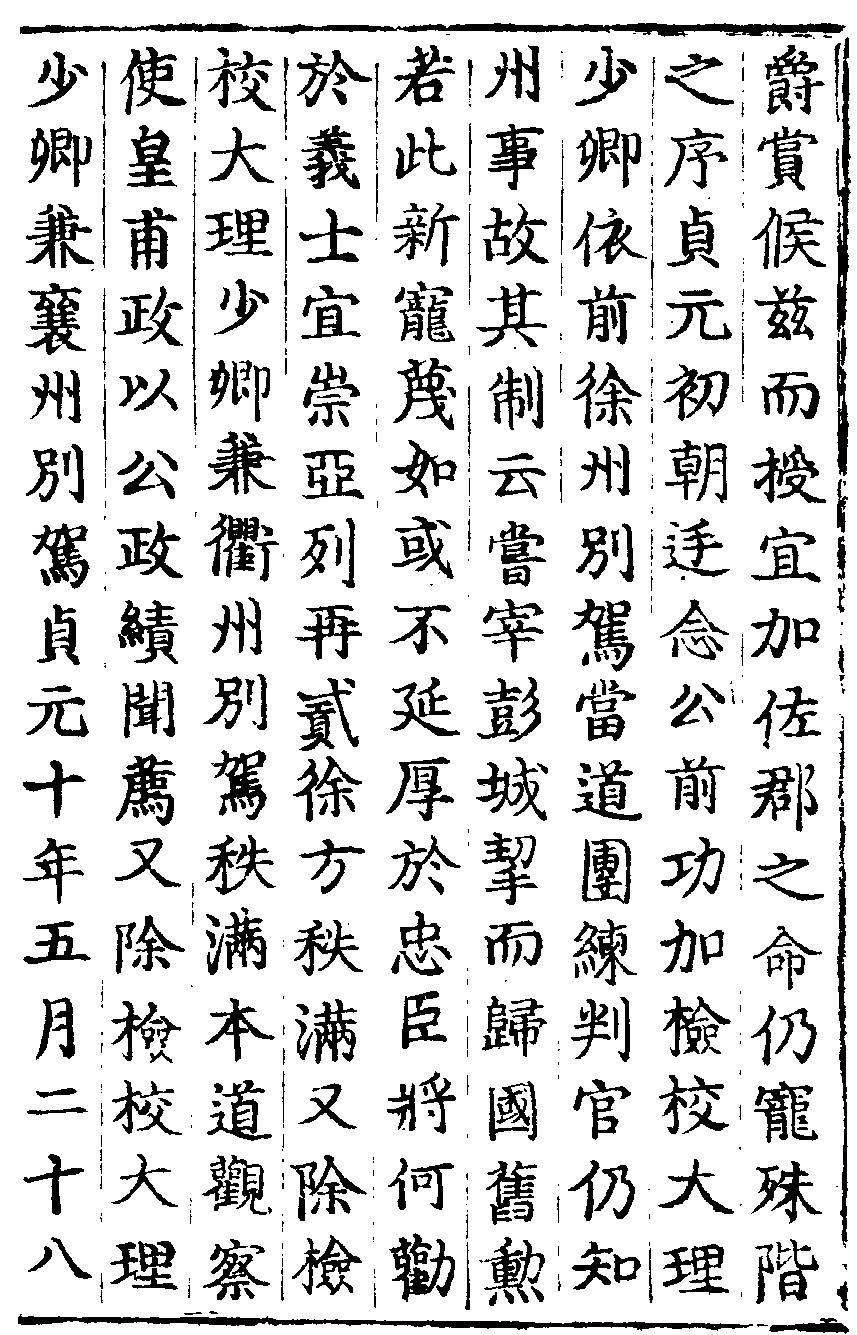 爵賞候茲而授宜加佐郡之命仍寵殊階
之序貞元初朝廷念公前功加檢校大理
少卿依前徐州別駕當道團練判官仍知
州事故其制云嘗宰彭城挈而歸國舊勳
若此新寵蔑如或不延厚於忠臣將何勸
於義士宜崇亞列再貳徐方秩滿又除檢
校大理少卿兼衢州別駕秩滿本道觀察
使皇甫政以公政績聞薦又除檢校大理
少卿兼襄州別駕貞元十年五月二十八